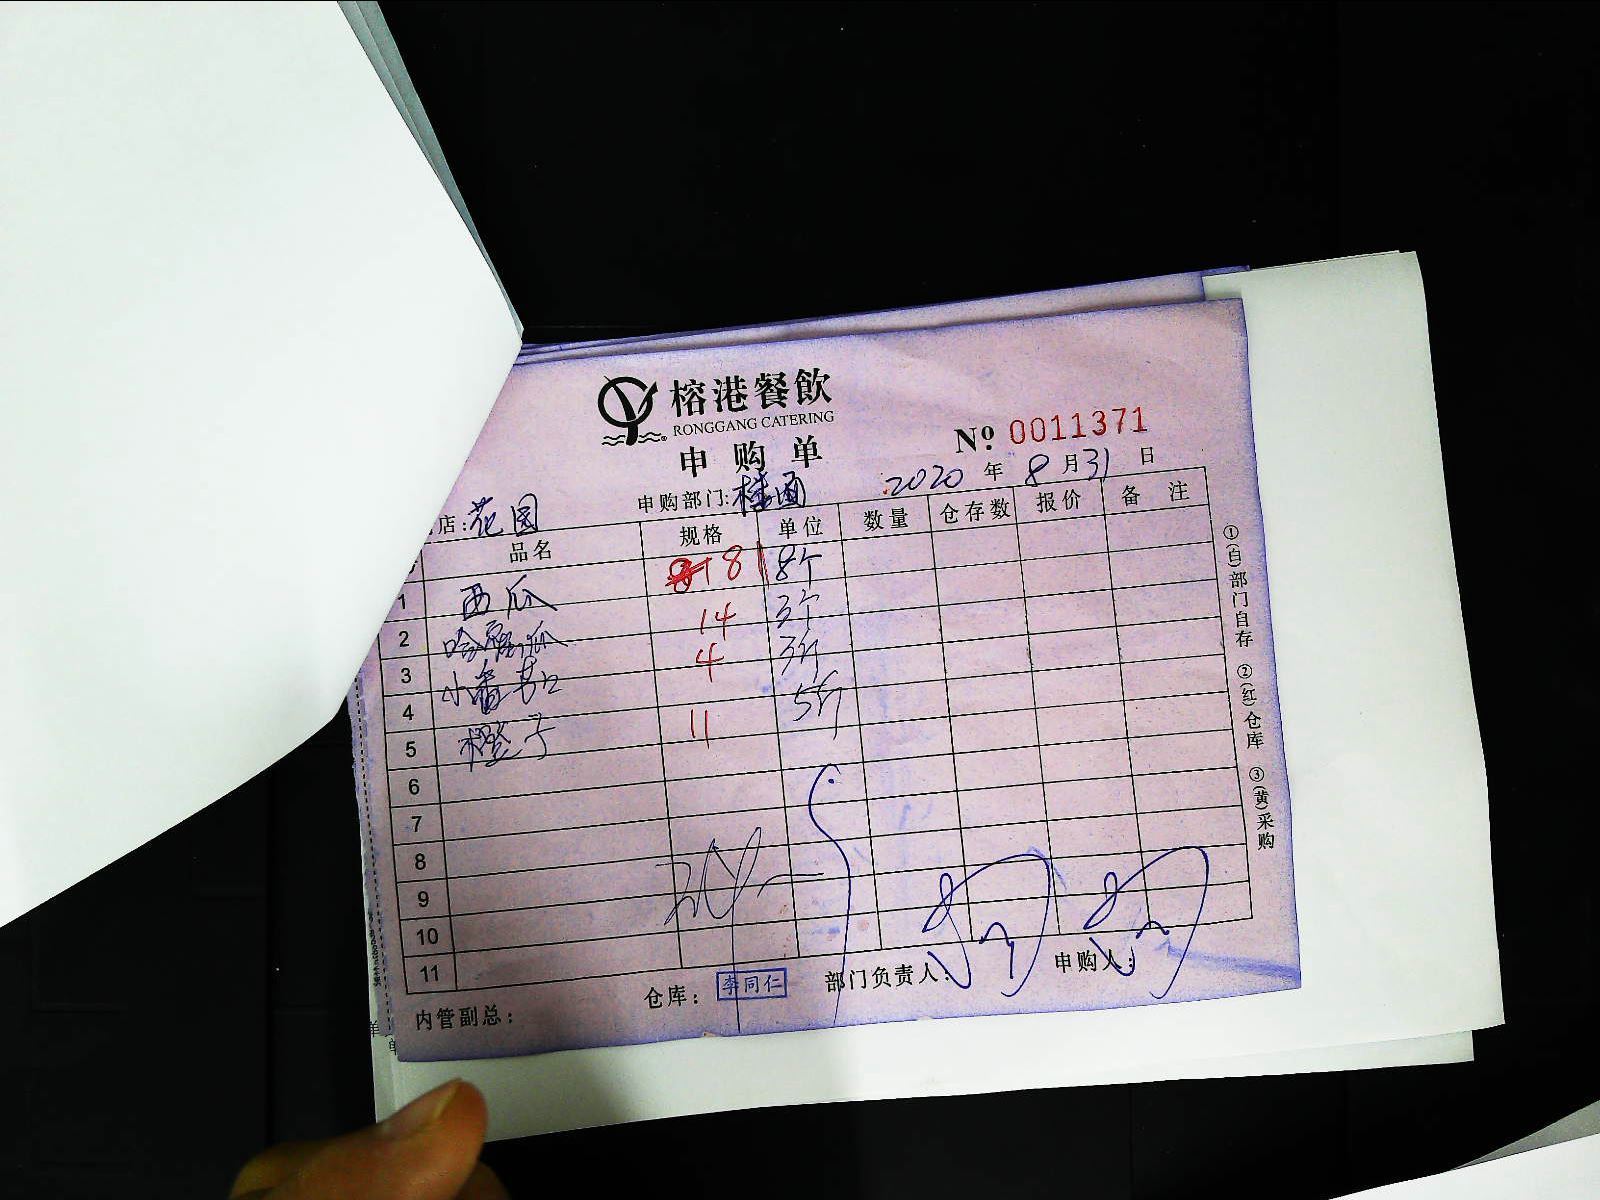 榕港餐飲
RONGGANG CATERING
申购单
№ 0011371
店:花园 申购部门:楼面 2020年8月31日
品名 规格 单位 数量 仓存数 报价 备注
1 西瓜 181 8个
2 哈密瓜 14 3个
3 小番茄 4 3斤
4 橙子 11 5斤
5
6
7
8
9
10
11
内管副总: 仓库: 李同仁 部门负责人: 申购人:
①(白)部门自存 ②(红)仓库 ③(黄)采购